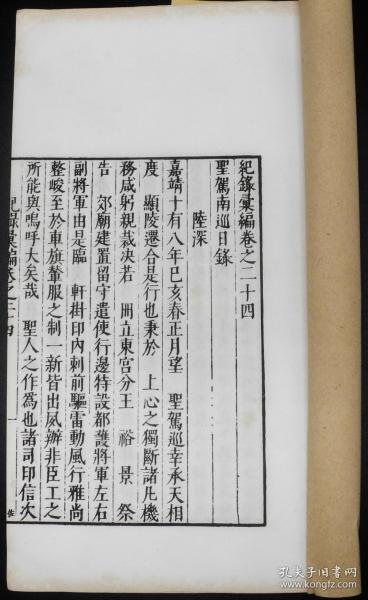 紀錄彙編卷之二十四
聖駕南巡日錄
陸深
嘉靖十有八年巳亥春正月望 聖駕巡幸承天相
度 顯陵遷合是行也秉於 上心之獨斷諸凡機
務咸躬親裁决若 冊立東宮分王 裕 景祭
告 郊廟建置留守遣使行邊特設都護將軍左右
副將軍由是臨 軒掛印內刺前驅雷動風行雅尚
整峻至於車旗輦服之制一新皆出夙辦非臣工之
所能與嗚呼大矣哉 聖人之作為也諸司印信次
紀錄彙編卷之二十四
一
孔夫子旧书网